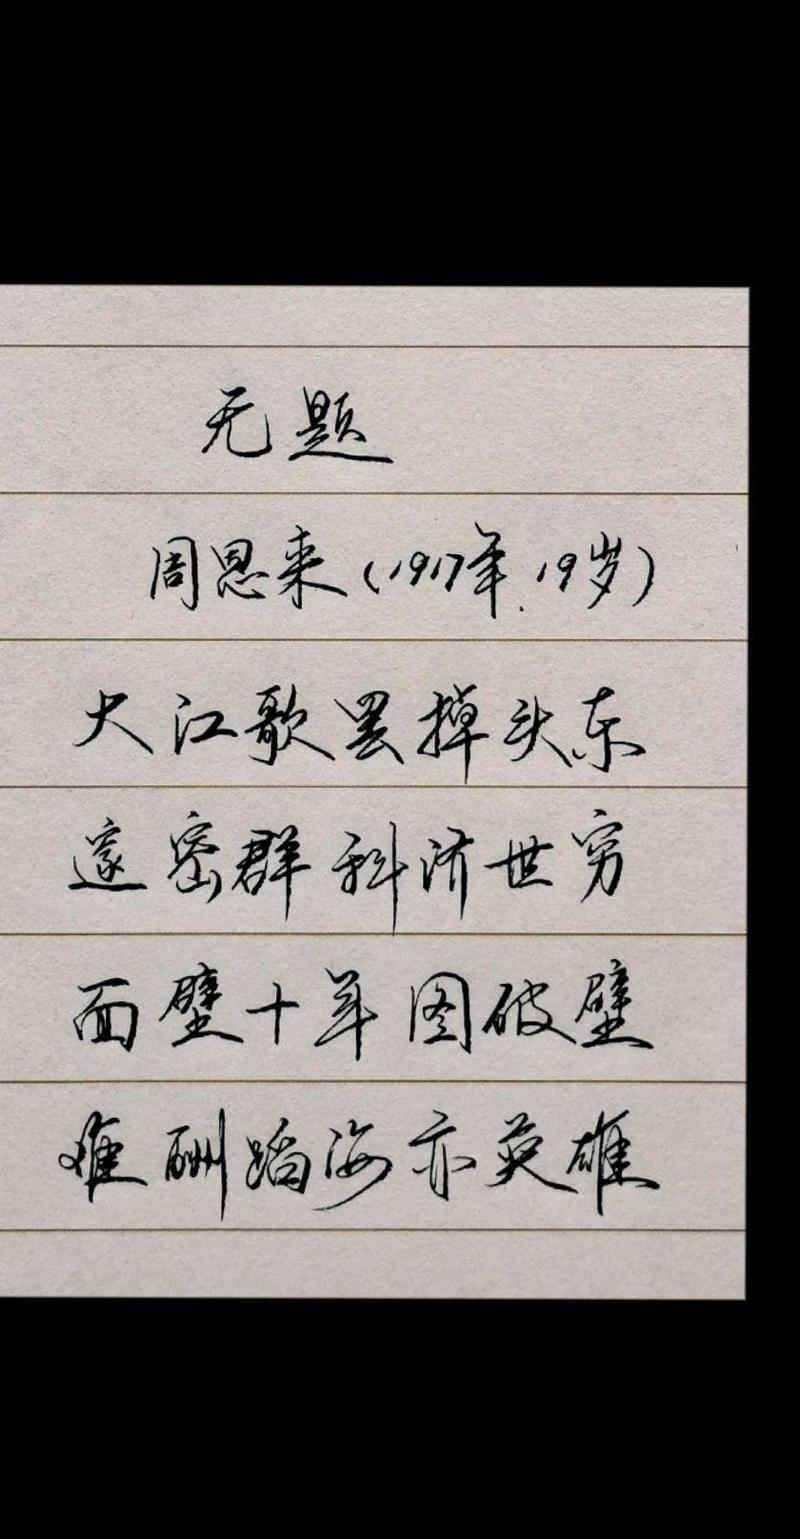 无题
周恩来(1917年.19岁)
大江歌罢掉头东
邃密群科济世穷
面壁十年图破壁
难酬蹈海亦英雄